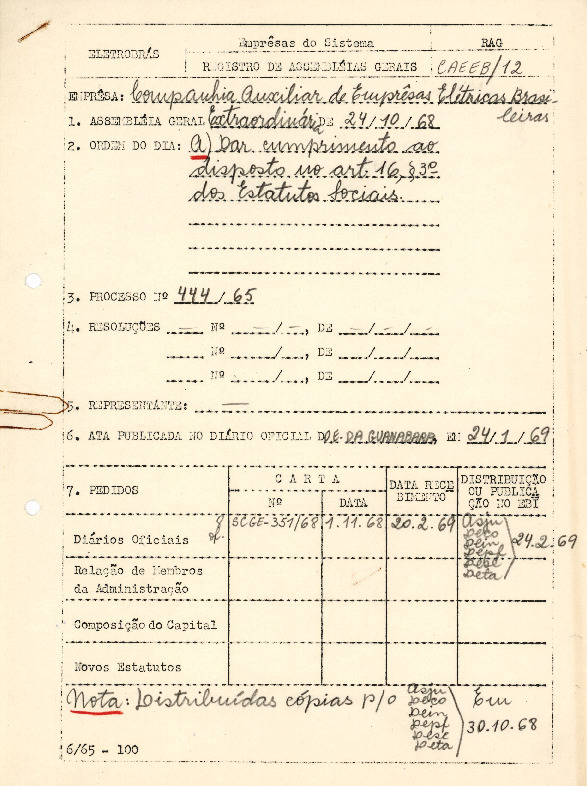 ELETROBRÁS
Emprêsas do Sistema
RAG
REGISTRO DE ASSEMBLÉIAS GERAIS
CAEEB/12
EMPRÊSA: Companhia Auxiliar de Emprêsas Elétricas Brasi-
leiras
1. ASSEMBLÉIA GERAL Extraordinária DE 24/10/68
2. ORDEM DO DIA: A) Dar cumprimento ao
disposto no art. 16, § 3º
dos Estatutos Sociais.
3. PROCESSO Nº 444/65
4. RESOLUÇÕES — Nº —/—, DE —/—/—
Nº / , DE / /
Nº / , DE / /
5. REPRESENTANTE: —
6. ATA PUBLICADA NO DIÁRIO OFICIAL D.O.E. DA GUANABARA, EM 24/1/69
7. PEDIDOS
CARTA
Nº
DATA
DATA RECE
BIMENTO
DISTRIBUIÇÃO
OU PUBLICA
ÇÃO NO EBI
Diários Oficiais
SCGE-351/68
1.11.68
20.2.69
Asju
Deco
Dein
Depf
Dese
Deta
24.2.69
Relação de Membros
da Administração
Composição do Capital
Novos Estatutos
Nota: Distribuídas cópias p/o
Asju
Deco
Dein
Depf
Dese
Deta
Em
30.10.68
6/65 - 100